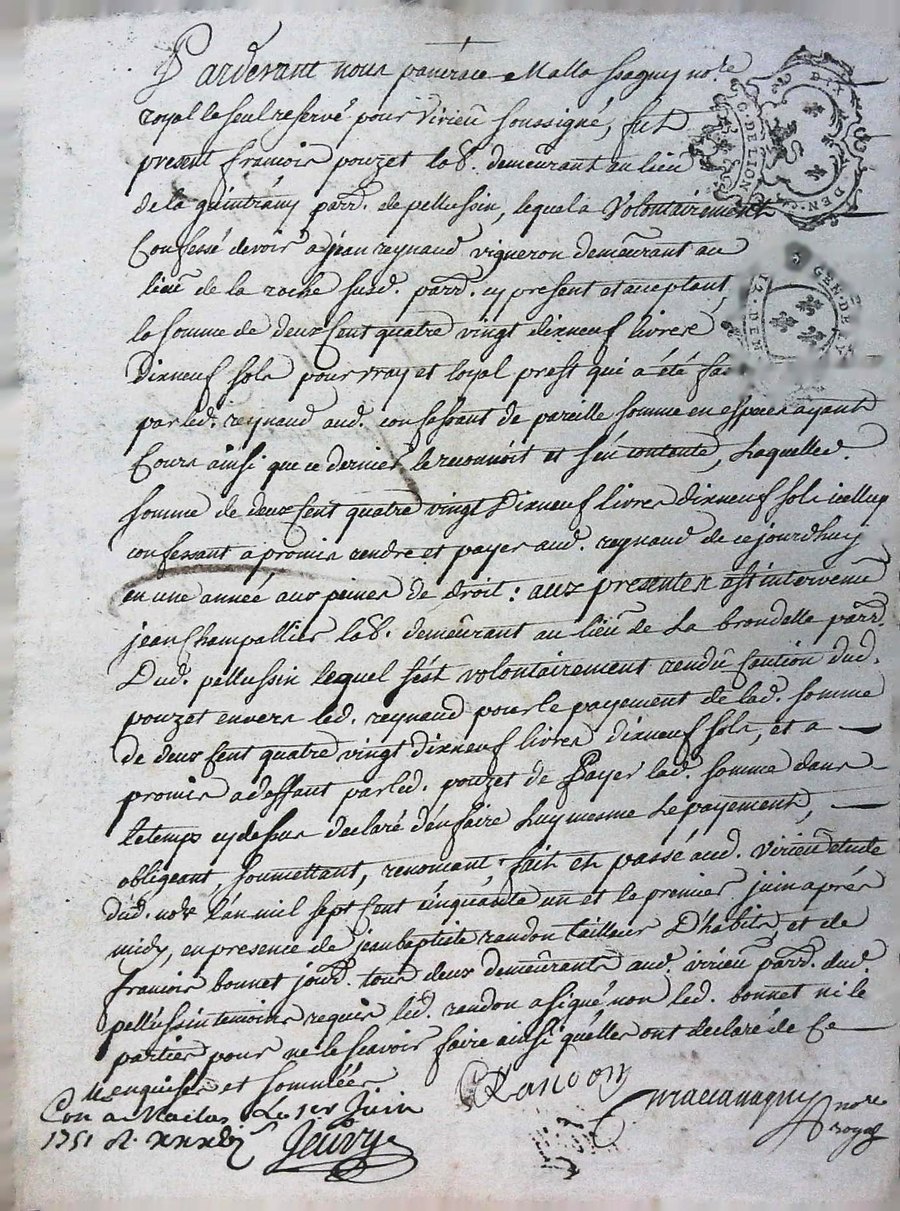 Pardevant nous
royal le seul reservé pour Virieû soussigné, fut
present francois pouzet lab.r demeûrant au lieû
de la parr.e de pellussin, lequel a Volontairement
Confessé devoir a jean reynaud vigneron demeûrant au
lieû de la roche susd. parr.e cy present et acceptant
la somme de deux Cent quatre vingt dixneuf livres
dixneuf sols pour vray et loyal prest qui a été fai
par led. reynaud aud. confessant de pareille somme en especes ayant
Cours ainsi que ce dernier le reconnoit et s'en contente, Laquelle d.
somme de deux Cent quatre vingt Dixneuf livres dixneuf sols icelluy
confessant a promis rendre et payer aud. reynaud de ce jourdhuy
en une année aux peines de droit : aux presentes est intervenû
jean Champallier lab.r demeûrant au lieû de La brondelle parr.e
Dud. pellussin lequel s'est volontairement rendû Caution dud.
pouzet envers led. reynaud pour le payement de lad. somme
de deux Cent quatre vingt dixneuf livres dixneuf sols, et a
promis a deffaut par led. pouzet de Payer lad. somme dans
le temps cy dessus declaré d'en faire Luy mesme Le payement,
obligeant, soumettant, renoncant, fait et passé aud. Virieû etude
dud. no.re l'an mil sept Cent cinquante un et le premier juin aprés
midy, en presence de jean baptiste randon tailleur D'habits, et de
francois bonnet jour.r tous deux demeûrants aud. virieû parr.e dud.
pellussin temoins requis led. randon a signé non led. bonnet ni le
parties pour ne le scavoir faire ainsi qu'elles ont declaré de Ce
enquises et sommées
Randon
no.re
royal
Con a Maclas Le 1er Juin
1751
G. DE LION
DIX DEN.
GEN. DE
12. DEN